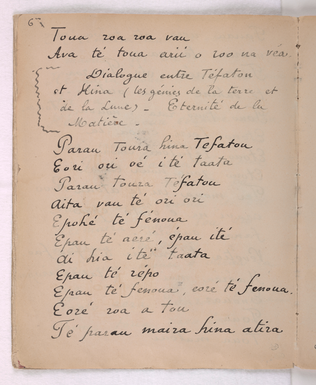 6
Toua roa roa vau
Ava té toua arii o roo na véa.
Dialogue entre Téfatou
et Hina (les génies de la terre et
de la Lune) _ Eternité de la
Matière _
Parau Toura hina Tefatou
Eori ori oé ité taata
Parau toura Tefatou
Aita vau té ori ori
Epohé té fénoua
Epau té , épau ité
di hia ité taata
Epau té répo
Epau té fenoua, eoré té fenoua.
Eoré roa a tou
Té parau maira hina atira